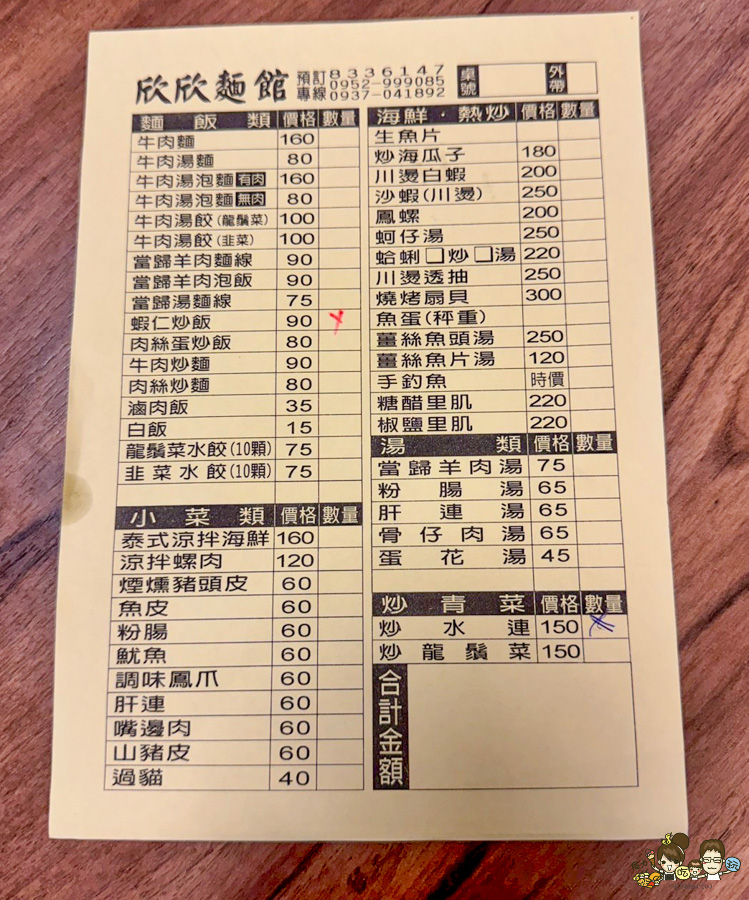 欣欣麵館 預訂專線 8336147 0952-999085 0937-041892 桌號 外帶
麵飯類 價格 數量
牛肉麵 160
牛肉湯麵 80
牛肉湯泡麵 有肉 160
牛肉湯泡麵 無肉 80
牛肉湯餃(龍鬚菜) 100
牛肉湯餃(韭菜) 100
當歸羊肉麵線 90
當歸羊肉泡飯 90
當歸湯麵線 75
蝦仁炒飯 90
肉絲蛋炒飯 80
牛肉炒麵 90
肉絲炒麵 80
滷肉飯 35
白飯 15
龍鬚菜水餃(10顆) 75
韭菜水餃(10顆) 75
小菜類 價格 數量
泰式涼拌海鮮 160
涼拌螺肉 120
煙燻豬頭皮 60
魚皮 60
粉腸 60
魷魚 60
調味鳳爪 60
肝連 60
嘴邊肉 60
山豬皮 60
過貓 40
海鮮·熱炒 價格 數量
生魚片
炒海瓜子 180
川燙白蝦 200
沙蝦(川燙) 250
鳳螺 200
蚵仔湯 250
蛤蜊□炒□湯 220
川燙透抽 250
燒烤扇貝 300
魚蛋(秤重)
薑絲魚頭湯 250
薑絲魚片湯 120
手釣魚 時價
糖醋里肌 220
椒鹽里肌 220
湯類 價格 數量
當歸羊肉湯 75
粉腸湯 65
肝連湯 65
骨仔肉湯 65
蛋花湯 45
炒青菜 價格 數量
炒水連 150
炒龍鬚菜 150
合計金額